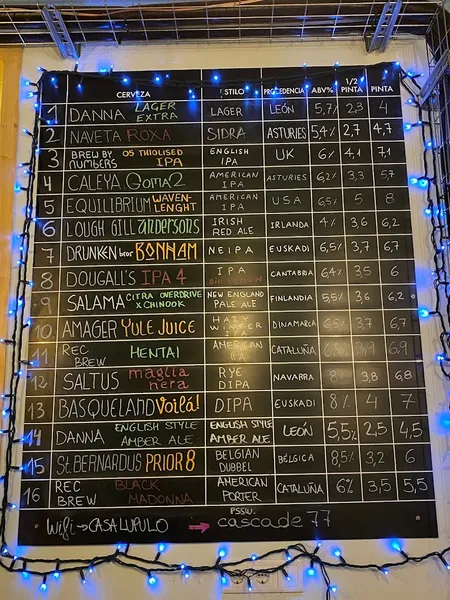 CERVEZA ESTILO PROCEDENCIA ABV% 1/2 PINTA PINTA
1 DANNA LAGER EXTRA LAGER LEÓN 5,7% 2,3 4
2 NAVETA ROXA SIDRA ASTURIES 5,4% 2,7 4,7
3 BREW BY NUMBERS 05 THIOLISED IPA ENGLISH IPA UK 6% 4,1 7,1
4 CALEYA GOMA 2 AMERICAN IPA ASTURIES 6,2% 3,3 5,7
5 EQUILIBRIUM WAVEN-LENGHT AMERICAN IPA USA 6,5% 5 8
6 LOUGH GILL ANDERSONS IRISH RED ALE IRLANDA 4% 3,6 6,2
7 DRUNKEN bror BONHAM NEIPA EUSKADI 6,5% 3,7 6,7
8 DOUGALL'S IPA 4 IPA CANTABRIA 6,4% 3,5 6
9 SALAMA CITRA OVERDRIVE X CHINOOK NEW ENGLAND PALE ALE FINLANDIA 5,5% 3,6 6,2
10 AMAGER YULE JUICE HAZY WINTER IPA DINAMARCA 6,5% 3,7 6,7
11 REC BREW HENTAI AMERICAN IPA CATALUÑA 3,9 6,9
12 SALTUS maglia nera RYE DIPA NAVARRA 8% 3,8 6,8
13 BASQUELAND Voilá! DIPA EUSKADI 8% 4 7
14 DANNA ENGLISH STYLE AMBER ALE ENGLISH STYLE AMBER ALE LEÓN 5,5% 2,5 4,5
15 St. BERNARDUS PRIOR 8 BELGIAN DUBBEL BÉLGICA 8,5% 3,2 6
16 REC BREW BLACK MADONNA AMERICAN PORTER CATALUÑA 6% 3,5 5,5
Wifi → CASALUPULO → PSSW. cascade 77